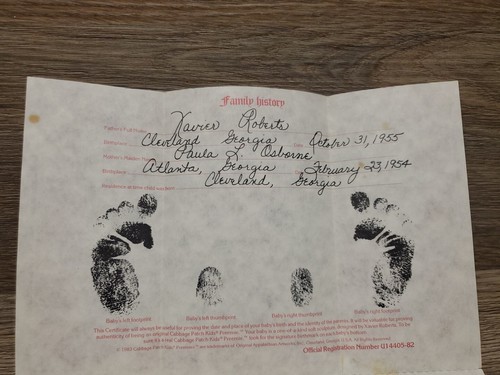 Family history
Father's Full Name Xavier Roberts
Birthplace Cleveland Georgia Date October 31, 1955
Mother's Maiden Name Paula L. Osborne
Birthplace Atlanta, Georgia February 23, 1954
Residence at time child was born Cleveland, Georgia
Baby's left footprint Baby's left thumbprint Baby's right thumbprint Baby's right footprint
This Certificate will always be useful for proving the date and place of your baby's birth and the identity of its parents. It will be valuable for proving
authenticity of being an original Cabbage Patch Kids® Preemie.™ Your baby is a one of a kind soft sculpture, designed by Xavier Roberts. To be
sure it's a real Cabbage Patch Kids® Preemie,™ look for the signature birthmark on your baby's bottom.
Official Registration Number U14405-82